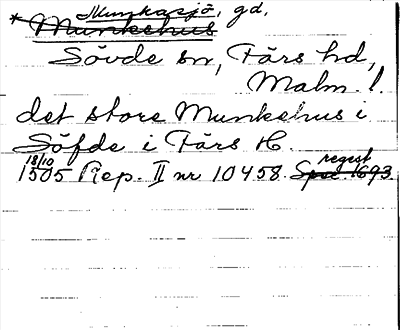 * Munkasjö, gd,
Munkehus
Sövde sn, Färs hd,
Malm. l.
det store Munkehus i
Söfde i Färs H.
18/10 regest
1505 Rep. II nr 10458. Spec. 1693